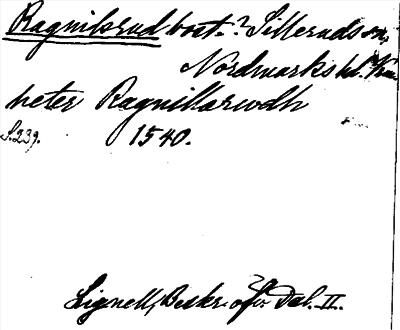 Ragnilsrud bost.? Silleruds sn,
Nordmarks hd.
heter Ragnillarwdh
S.239. 1540.
Lignell, Beskr. öfv. Dal. II.